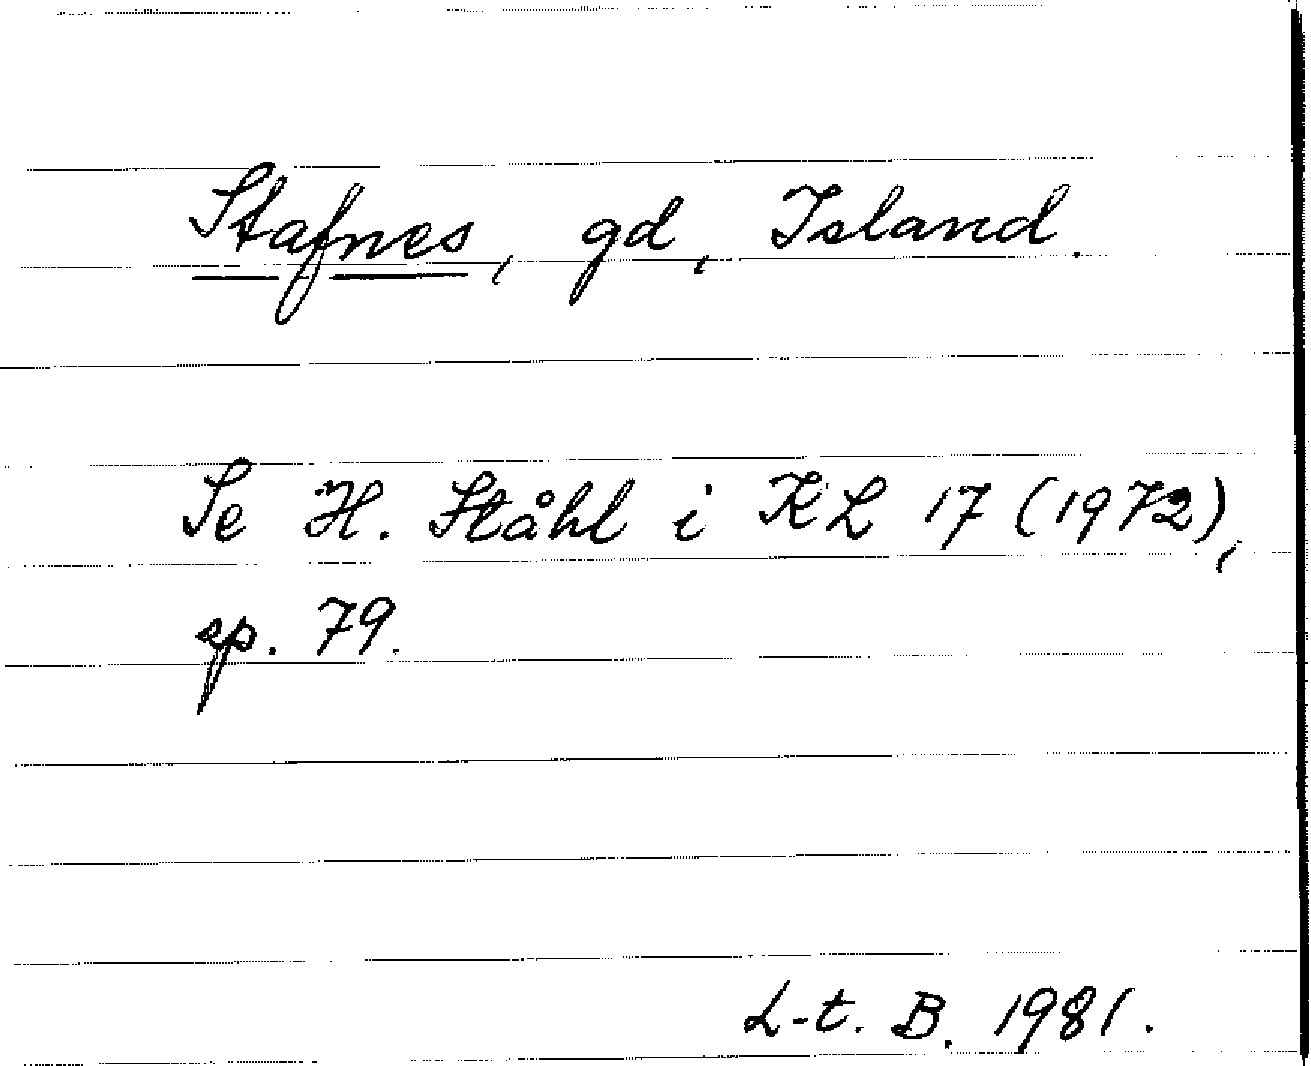 Stafnes, gd, Island.
Se H. Ståhl i KL 17 (1972),
sp. 79.
L-t. B. 1981.